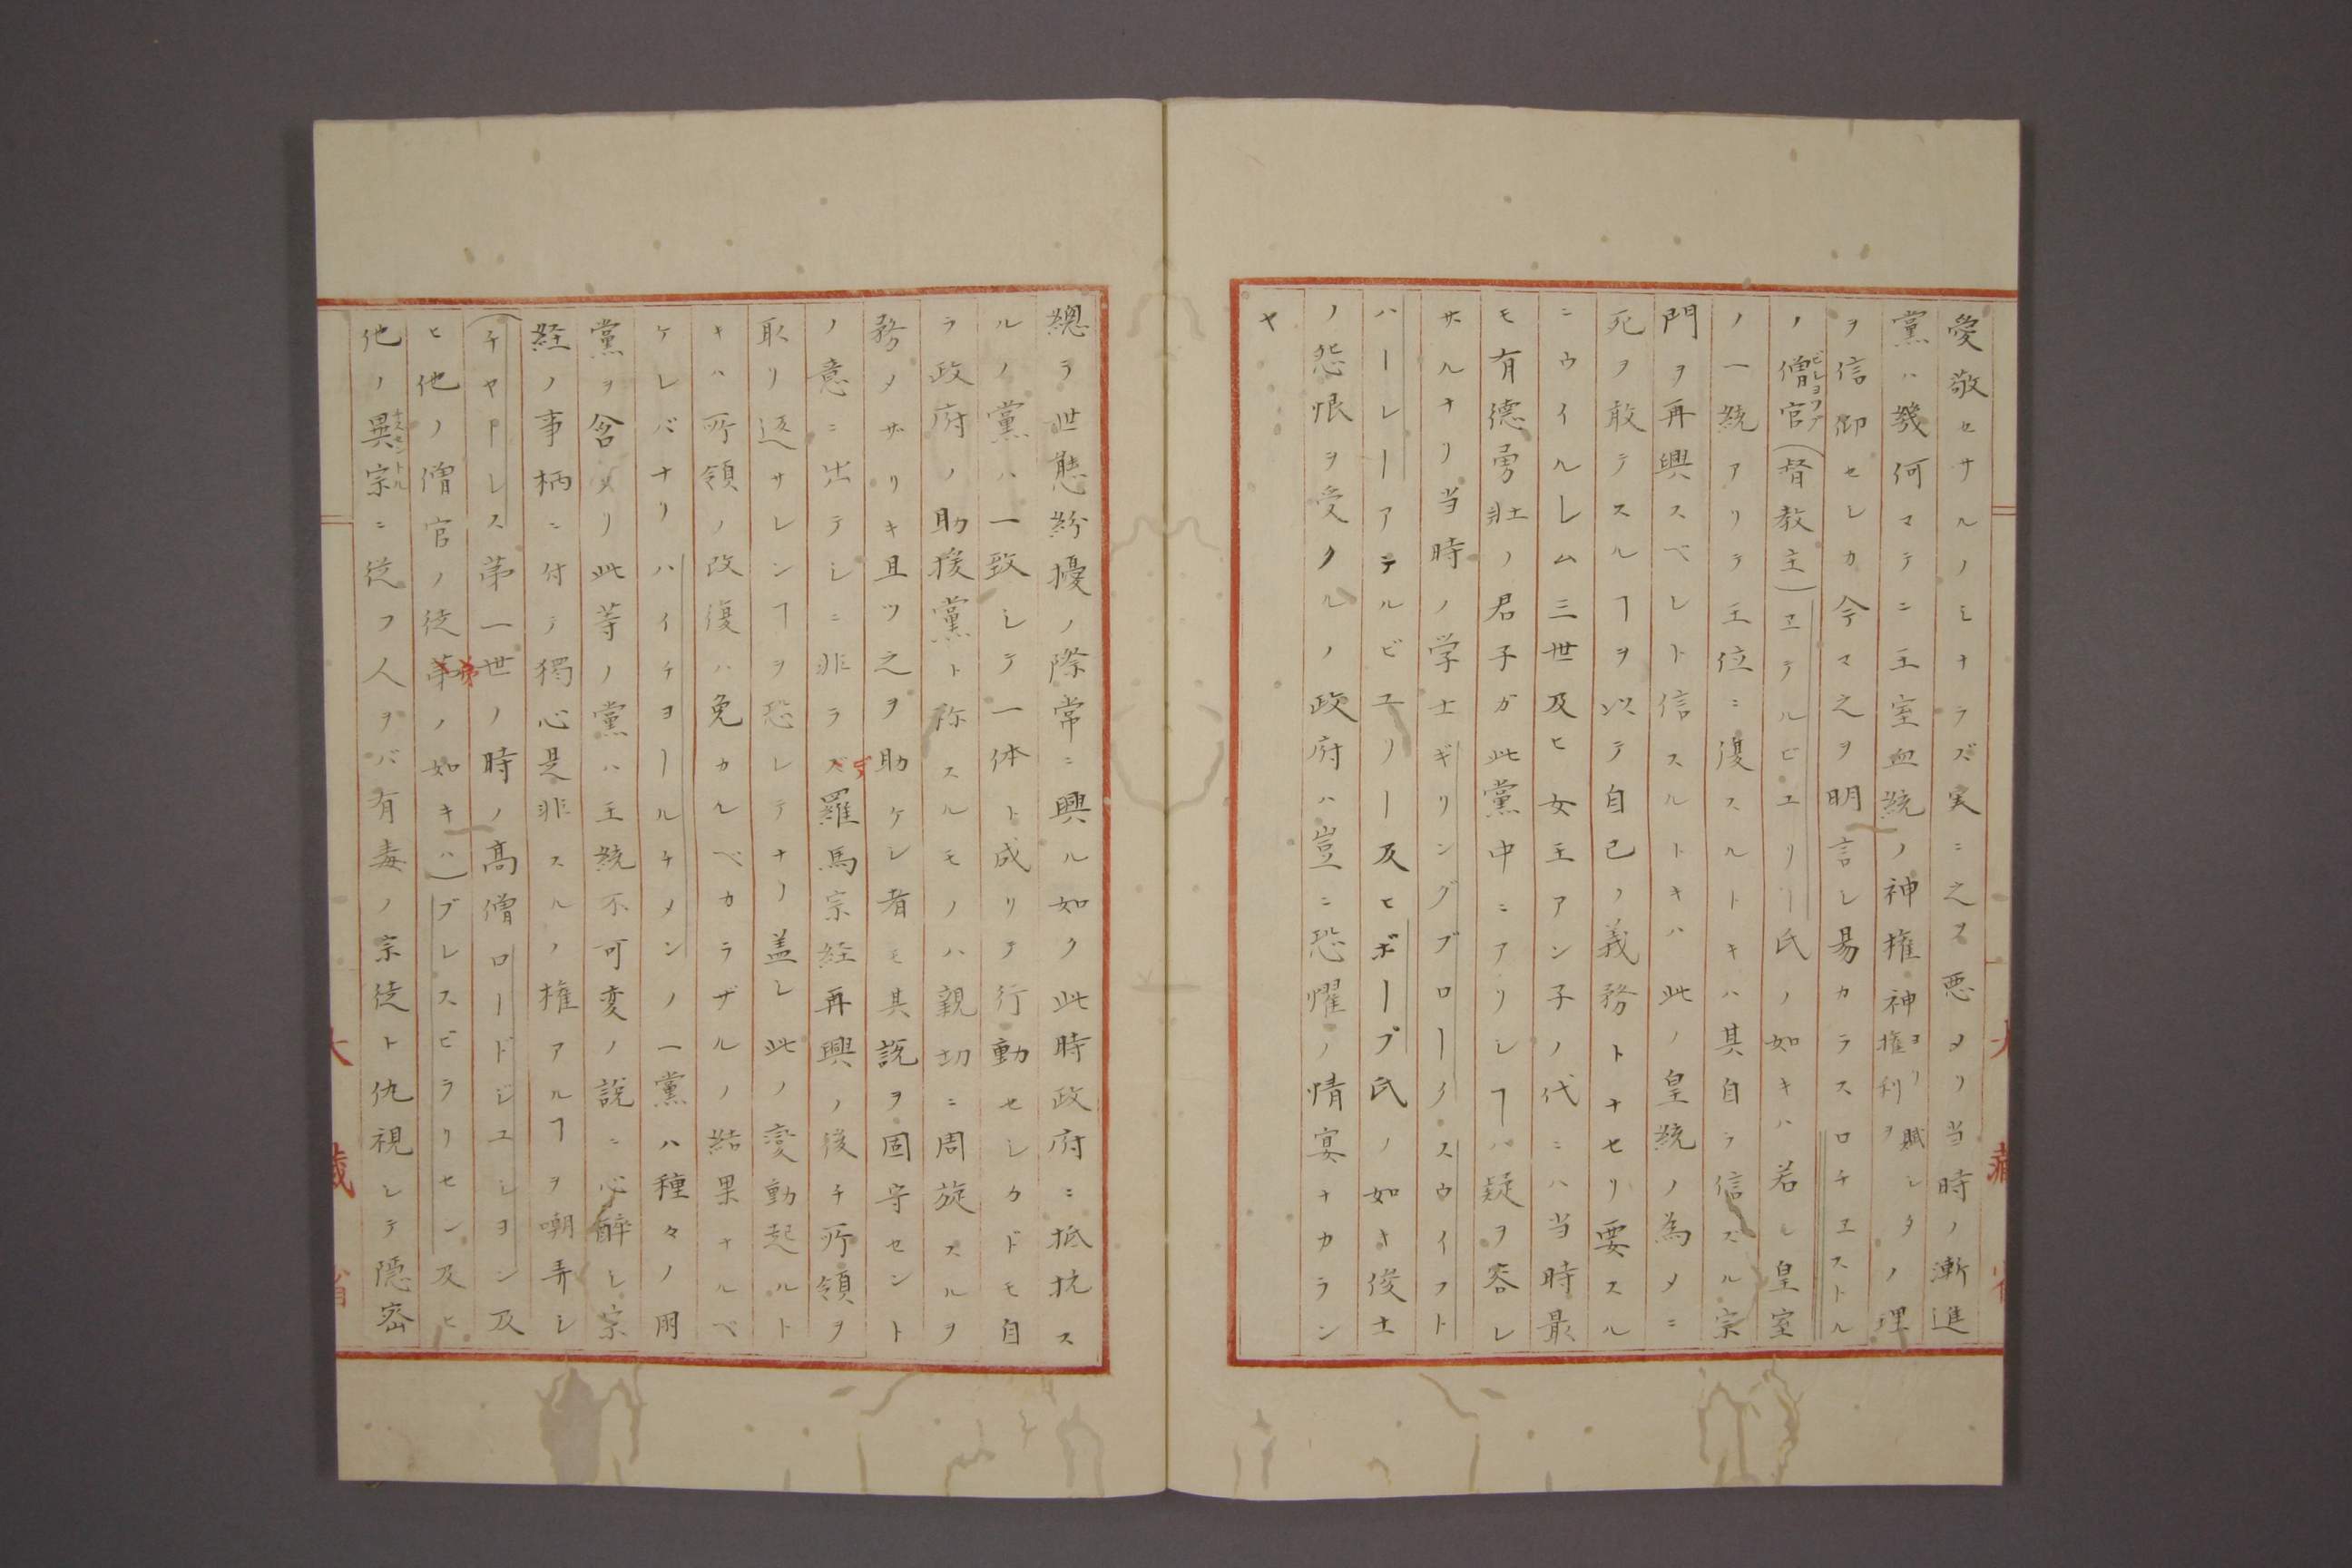 愛敬セサルノミナラズ実ニ之ヲ悪メリ当時ノ漸進
黨ハ幾何マテニ王室血統ノ神権神ヨリ賦シタル権利ヲノ理
ヲ信仰セレカ今マ之ヲ明言シ易カラスロチヱストル
ノ僧官ビショツプ(督教主)ヱテルビユリー氏ノ如キハ若シ皇室
ノ一統アリテ王位ニ復スルトキハ其自ラ信ズル宗
門ヲ再興スベレト信スルトキハ此ノ皇統ノ為メニ
死ヲ敢テスルヿヲ以テ自己ノ義務トナセリ要スル
ニウイルレム三世及ヒ女王アン子ノ代ニハ当時最
モ有徳勇壮ノ君子ガ此黨中ニアリシヿハ疑ヲ容レ
ザルナリ当時ノ学士ギリングブロークスウイフト
ハーレーアテルビユノー及ヒポープ氏ノ如キ俊士
ノ怨恨ヲ受クルノ政府ハ豈ニ恐懼ノ情宴ナカラン
ヤ
總テ世態紛擾ノ際常ニ興ル如ク此時政府ニ抵抗ス
ルノ黨ハ一致シテ一体ト成リテ行動セシカドモ自
ラ政府ノ助援黨ト称スルモノハ親切ニ周旋スルヲ
務メザリキ且ツ之ヲ助ケシ者モ其説ヲ固守セント
ノ意ニ出テシニ非ラズ羅馬宗経再興ノ後チ所領ヲ
取リ返サレンヿヲ恐レテナリ盖シ此ノ変動起ルト
キハ所領ノ改復ハ免カルベカラザルノ結果ナルベ
ケレバナリハイチヨールチメンノ一黨ハ種々ノ朋
黨ヲ含メリ此等ノ黨ハ王統不可変ノ説ニ心醉シ宗
経ノ事柄ニ付テ獨心是非スルノ権アルヿヲ嘲弄シ
(チヤールス第一世ノ時ノ高僧ロードジユシヨン及
ヒ他ノ僧官ノ徒弟ノ如キハ)ブレスビテリセン及ヒ
他ノ異宗ヂスセントルニ従フ人ヲバ有毒ノ宗徒ト仇視シテ隠密
大藏省
大藏省